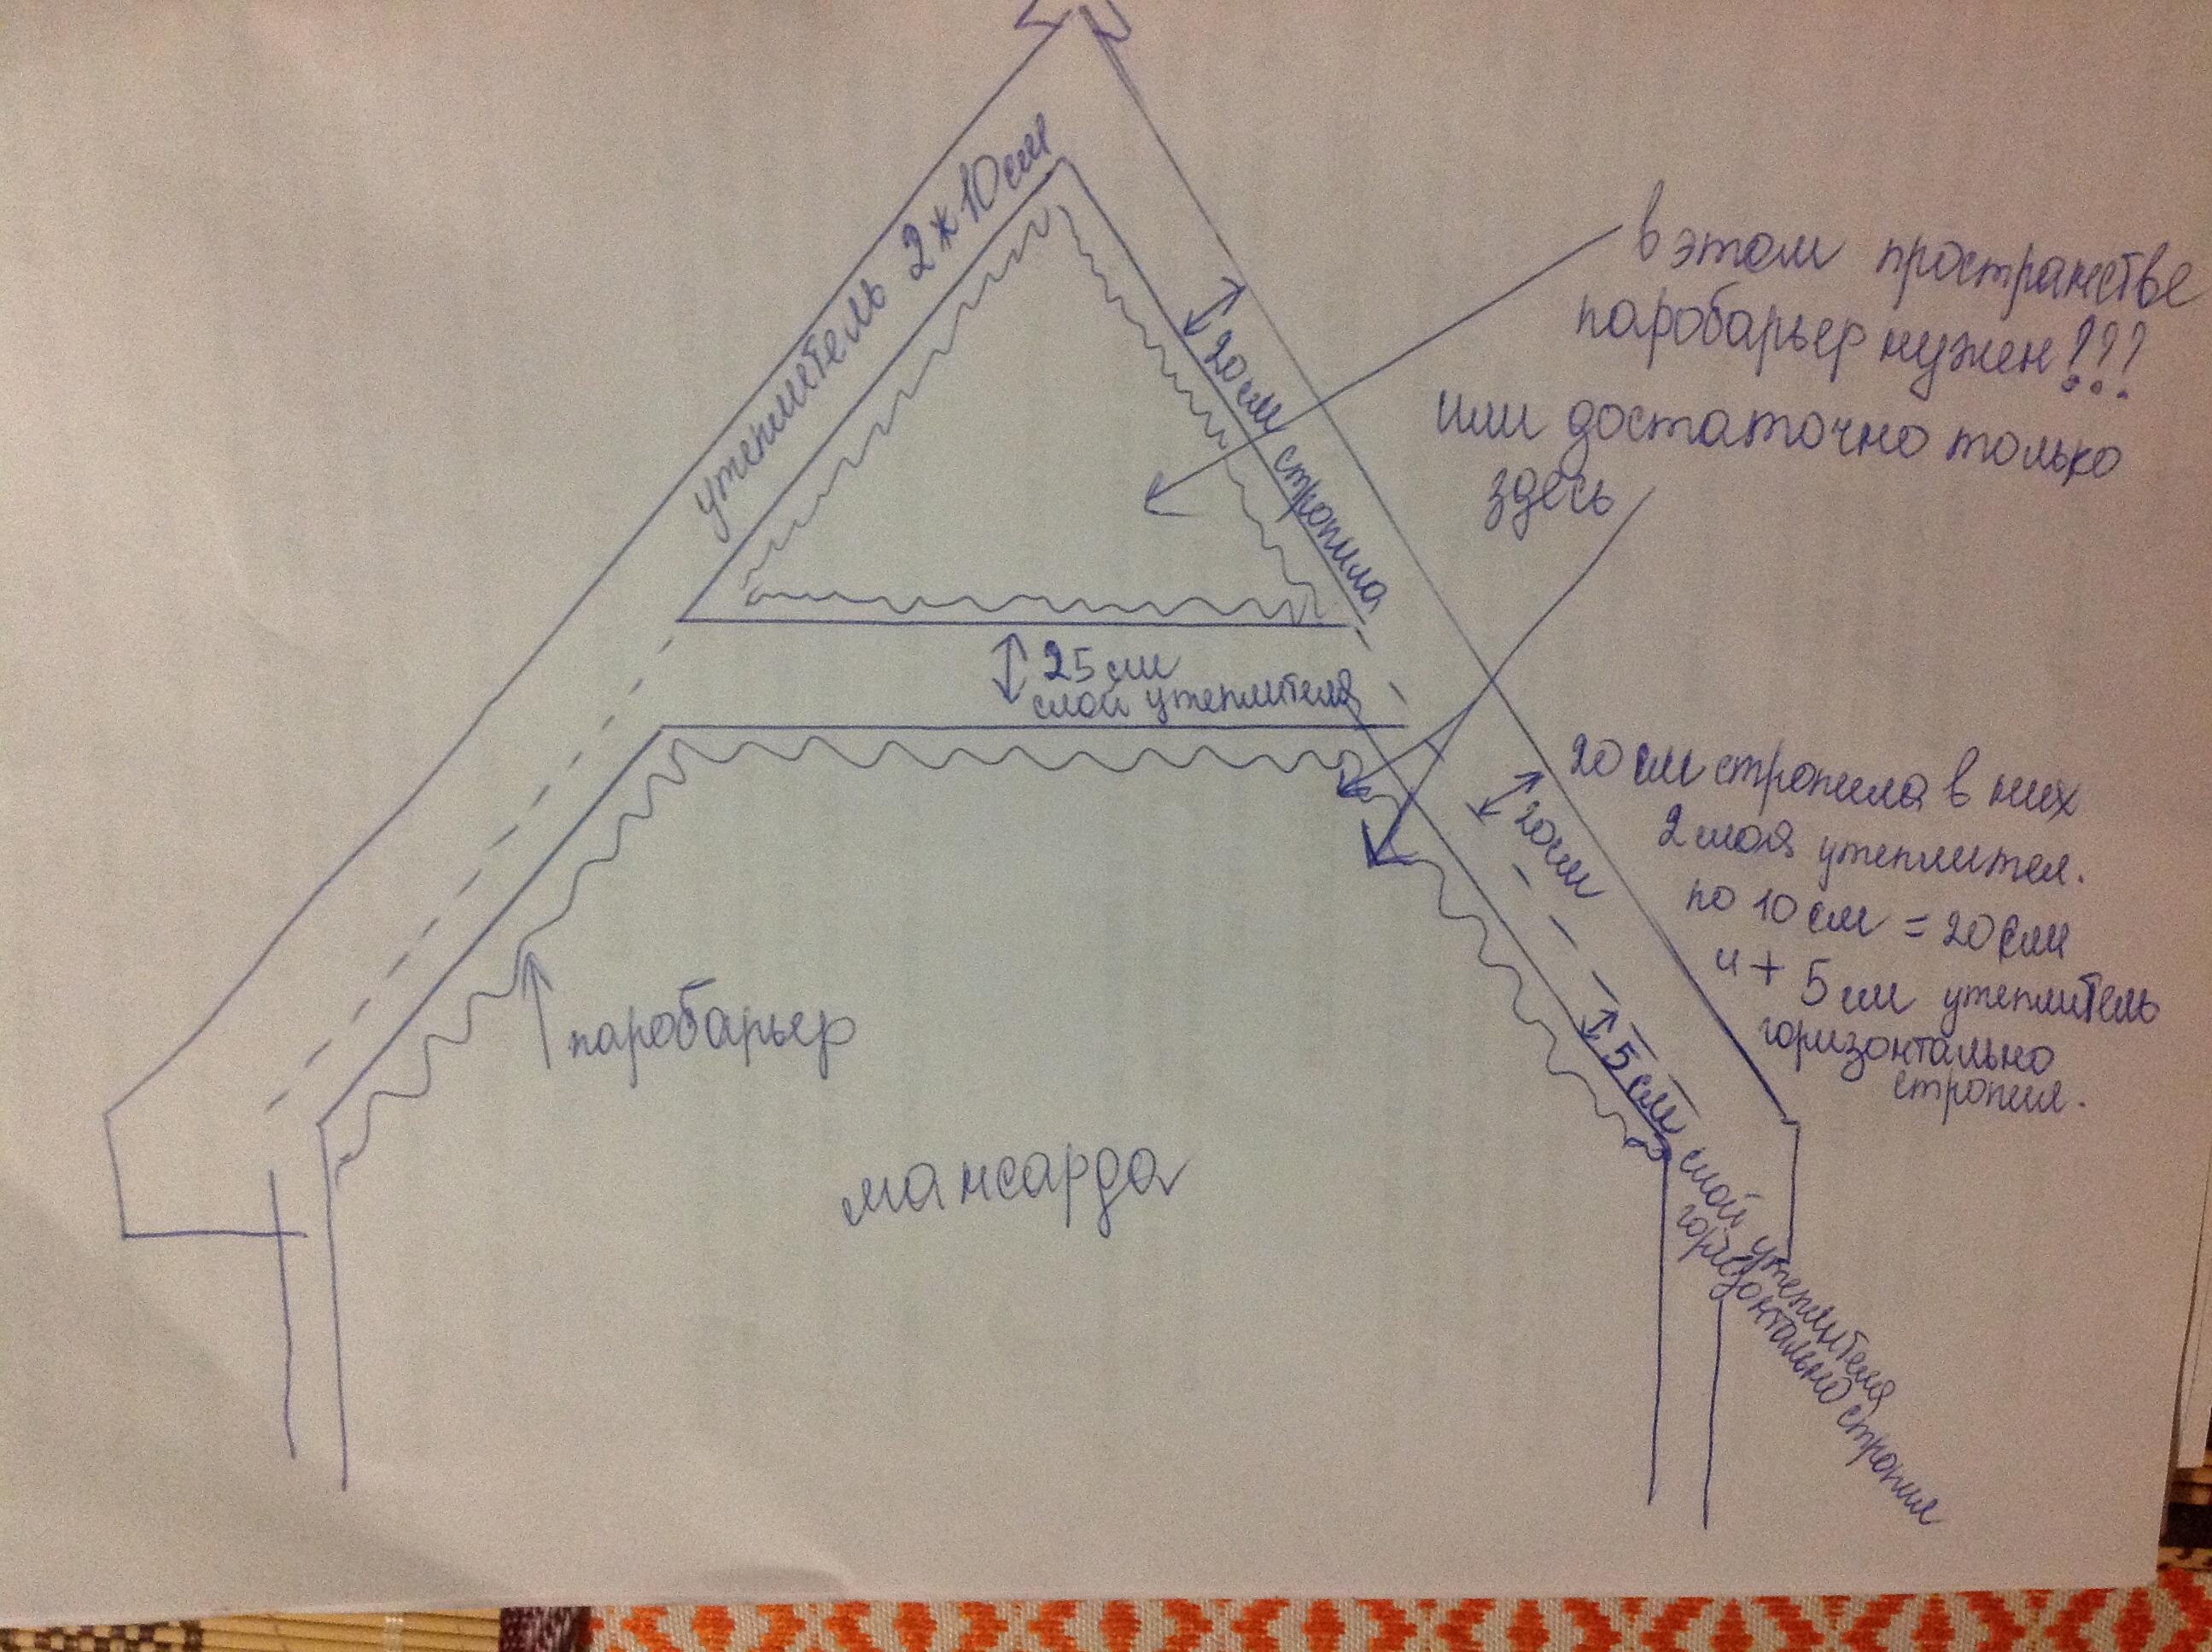 утеплитель 2*10см
20см стропила
в этом пространстве
паробарьер нужен???
или достаточно только
здесь
25 см
слой утеплителя
20 см стропила в них
2 слоя утеплител.
по 10 см = 20 см
и + 5 см утеплитель
горизонтально
стропил.
20см
5 см слой утеплителя
горизонтально стропил
паробарьер
мансарда